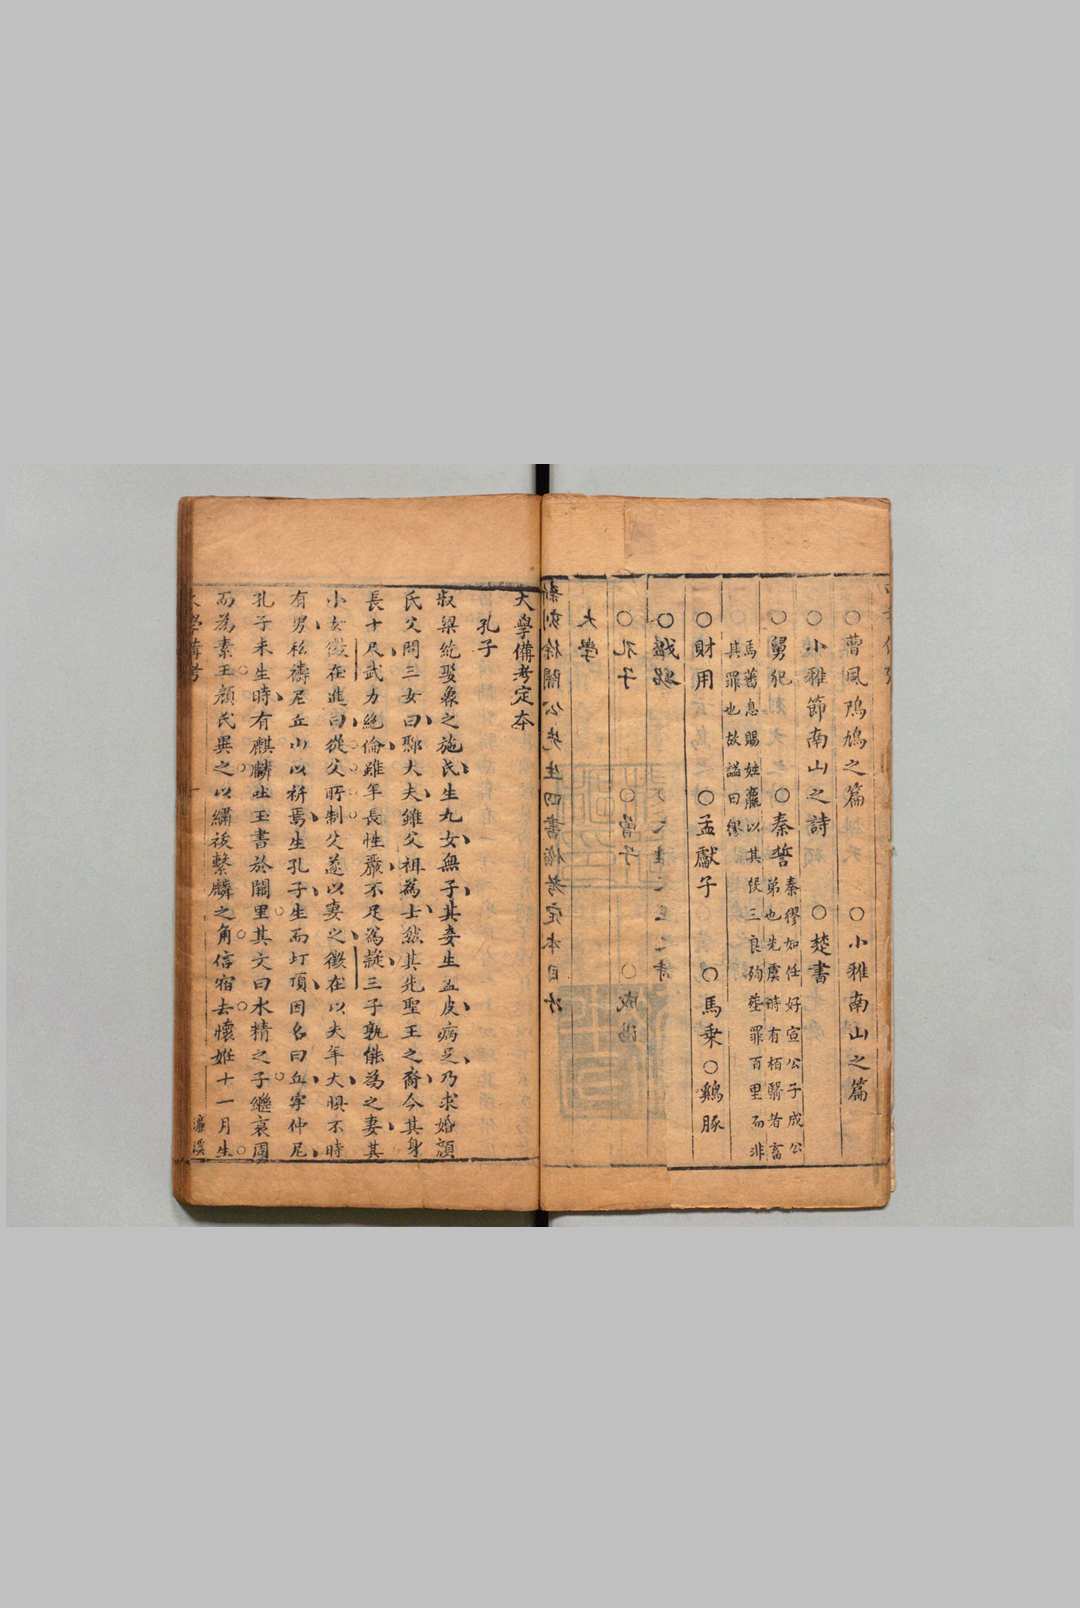 ○曹風鳲鳩之篇　○小雅南山之篇
○小雅節南山之詩　○楚書
○舅犯　○秦誓
秦穆如任好宣公子成公
弟也先虞時有栢翳者畜
馬蕃息賜姓嬴以其從三良殉葬罪百里而非
其罪也故謚曰繆
○財用　○孟獻子　○馬乗○鷄豚
大學備考定本
孔子
叔梁紇娶魯之施氏生九女無子其妾生孟皮病足乃求婚顔
氏父問三女曰鄹大夫雖父祖為士然其先聖王之裔今其身
長十尺武力絶倫雖年長性嚴不足為疑三子孰能為之妻其
小女徵在進曰從父所制父遂以妻之徵在以夫年大恐不時
有男私禱尼丘山以祈焉生孔子生而圩頂因名曰丘字仲尼
孔子未生時有麒麟吐玉書於闕里其文曰水精之子繼衰周
而為素王顔氏異之以繡紱繫麟之角信宿去懷姙十一月生